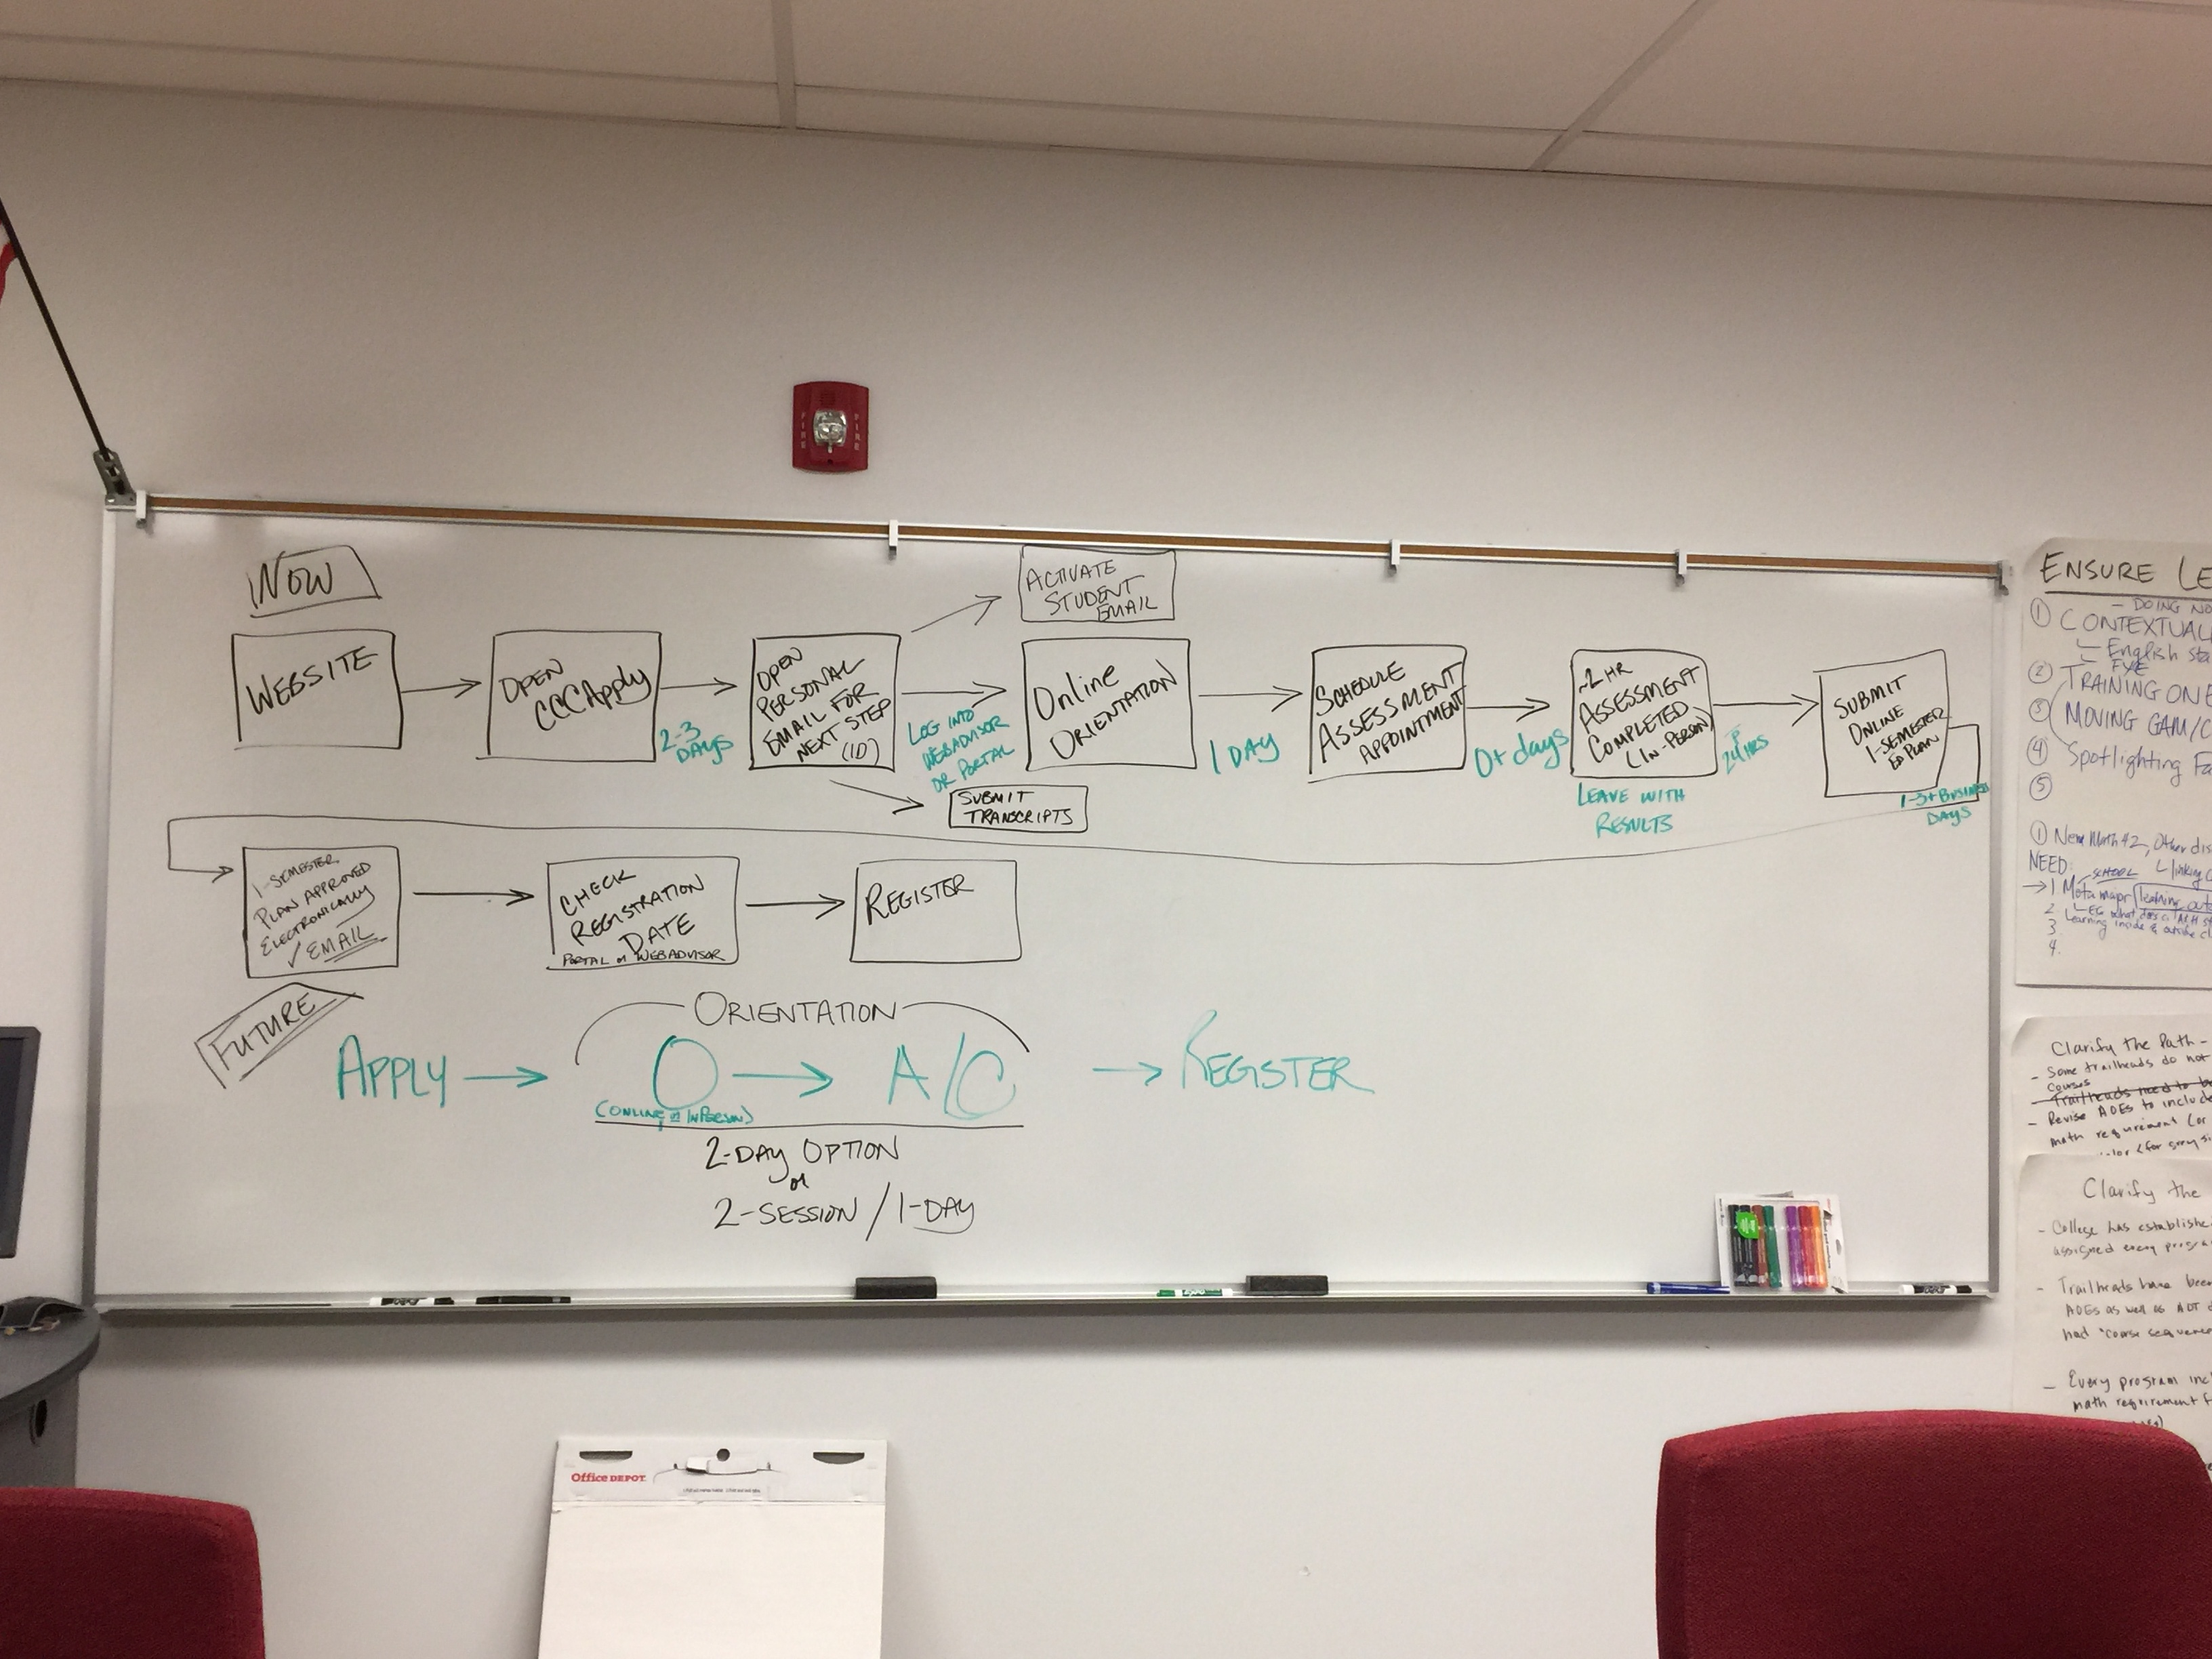 FIRE
FIRE
NOW
WEBSITE
OPEN
CCCApply
2-3
DAYS
OPEN
PERSONAL
EMAIL FOR
NEXT STEP
(ID)
ACTIVATE
STUDENT
EMAIL
LOG INTO
WEBADVISOR
OR PORTAL
SUBMIT
TRANSCRIPTS
Online
ORIENTATION
1 DAY
SCHEDULE
ASSESSMENT
APPOINTMENT
0+ days
~2 HR
ASSESSMENT
COMPLETED
(IN-PERSON)
LEAVE WITH
RESULTS
HRS
SUBMIT
ONLINE
1-SEMESTER
ED PLAN
1-3+ BUSINESS
DAYS
1-SEMESTER
PLAN APPROVED
ELECTRONICALLY
✓ EMAIL
CHECK
REGISTRATION
DATE
PORTAL or WEBADVISOR
REGISTER
FUTURE
ORIENTATION
APPLY → O → A/C → REGISTER
(ONLINE or INPERSON)
2-DAY OPTION
or
2-SESSION / 1-DAY
ENSURE LE
- DOING NO
① CONTEXTUAL
English sta
FYE
② TRAINING ON E
③ MOVING GAM/C
④ Spotlighting Fa
⑤
① New Math 42, Other dis
NEED: SCHOOL linking
→ 1 Meta major learning outc
2
Learning inside & outside cl
3
4.
Clarify the Path -
- Some trailheads do not
courses
- Trailheads need to b
- Revise AOEs to include
math requirement (or
color (for gray si
Clarify the
- College has establishe
assigned every progra
- Trailheads have been
AOEs as well as ADT
had "course sequence
- Every program inc
math requirement f
Office DEPOT